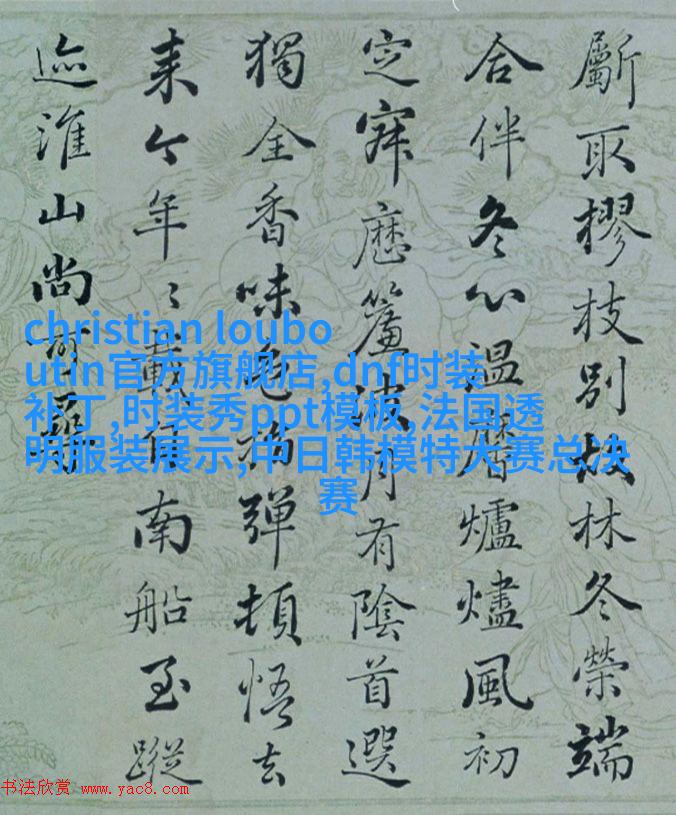 斸取樛枝别故林冬榮端
合伴冬心温爐燼風初
定歷簾波月有陰首選
獨全香味色拈彈頓悟去
来今年〻載得南船至蹤
迹淮山尚可尋
christian loubo
utin官方旗舰店,dnf时装
补丁,时装秀ppt模板,法国透
明服装展示,中日韩模特大赛总决
赛
书法欣赏 www.yac8.com